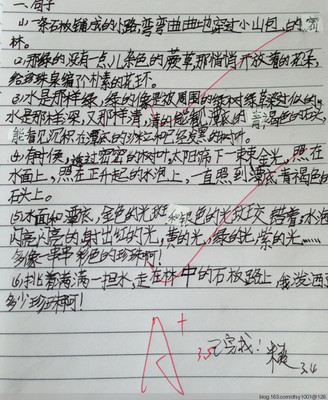 一、句子
(1)一条石板铺成的小路,弯弯曲曲地穿过小山包上的密
林。
(2)那绿的没有一点儿杂色的蕨草,那悄悄开放着的花朵,
给珍珠泉编了个朴素的花环。
(3)水是那样绿,绿的像是被周围的绿树绿草染过似的,
水是那样深,又那样清,清的能看见潭底的青褐色的石头,
能看见沉积在潭底的沙粒和已经发黑的树叶。
(4)有时候,透过密密的树叶,太阳筛下一束束金光,照在
水面上,照在正升起的水泡上,一直照到潭底青褐色的
石头上。
(5)水面和潭底,金色的光斑和银色的光斑交错着;水泡
闪亮闪亮的,射出红的光,黄的光,绿的光,紫的光……
多像一串串彩色的珍珠啊!
(6)我挑着满满一担水,走在林中的石板路上,我泼洒
多少珍珠啊!
A+
3.5已穷我!
3.4
blog.163.com/dhsy1001@126